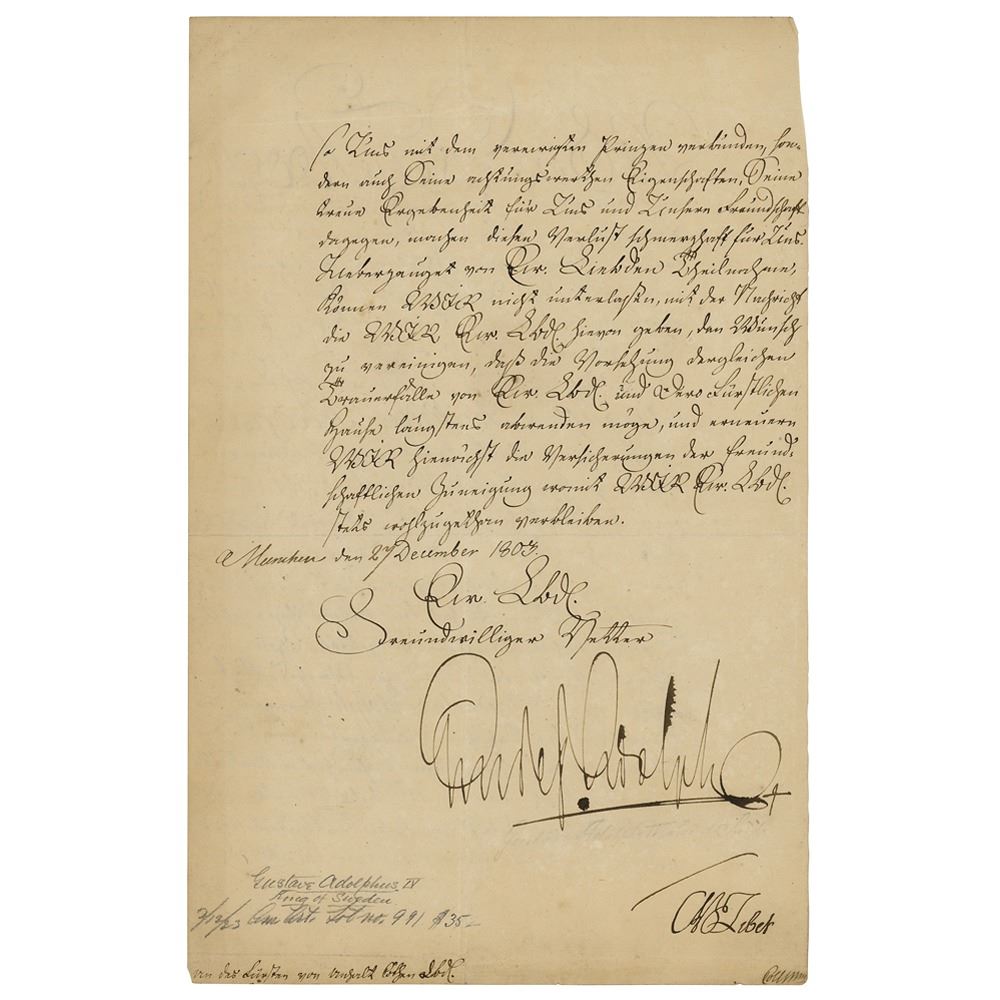 so Uns mit dem verewigten Prinzen verbunden, son-
dern auch Seine achtungswerthen Eigenschaften, Seine
treue Ergebenheit für Uns und Unsere Freundschaft
dagegen, machen diesen Verlust schmerzhaft für Uns.
Ueberzeuget von Ew. Liebden Theilnahme,
können WIR nicht unterlaßen, mit der Nachricht
die WIR Ew. Lbd. hievon geben, den Wunsch
zu vereinigen, daß die Vorsehung dergleichen
Trauerfälle von Ew. Lbd. und Dero Fürstlichen
Hause längstens abwenden möge, und erneuern
WIR hienächst die Versicherungen der freund-
schaftlichen Zuneigung womit WIR Ew. Lbd.
stets wohlzugethan verbleiben.
München den 27 December 1803.
Ew. Lbd.
Freundwilliger Vetter
Gustaf Adolph
Gustave Adolphus IV
King of Sweden
Am Art. Lot no. 991 $35-
an des Fürsten von Anhalt Cöthen Lbd.